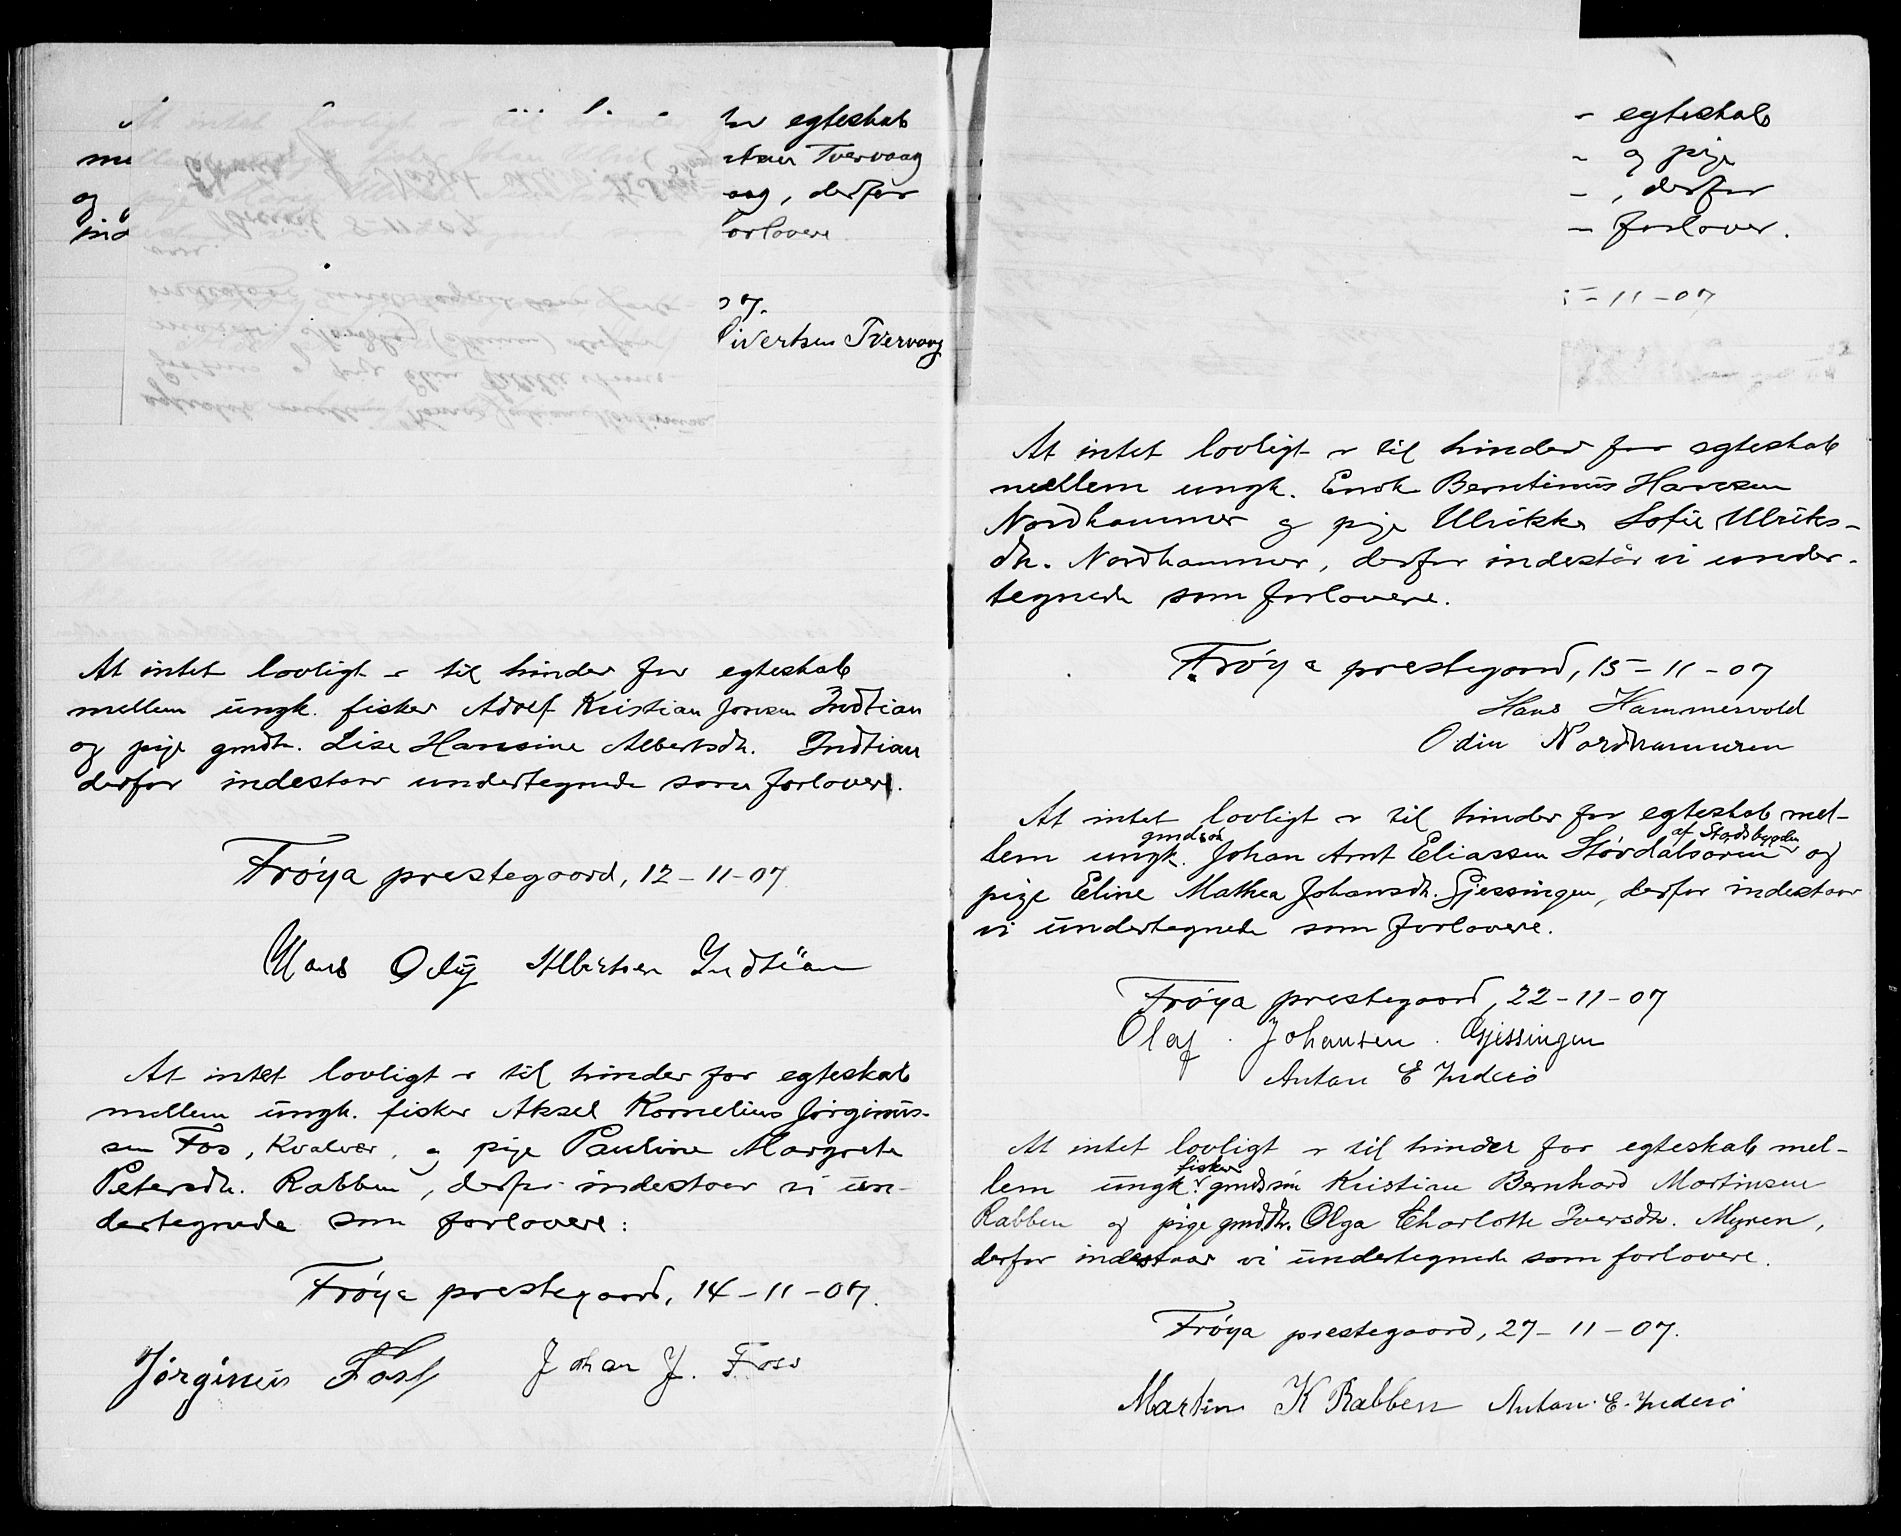 egteskab
me Tvervaag
og , derfor
ind forlovere
07.
Sivertsen Tvervaag
At intet lovligt er til hinder for egteskab
mellem ungk. fisker Adolf Kristian Jonsen Indtian
og pige gmdtr. Lise Hansine Albertsdtr. Indtian
derfor indestaar undertegnede som forlovere.
Frøya prestegaard, 12-11-07.
Hans Albertsen Indtian
At intet lovligt er til hinder for egteskab
mellem ungk. fisker Aksel Kornelius Jørginus-
sen Fos, Kvalvær, og pige Pauline Margrete
Petersdtr. Rabben, derfor indestaar vi un-
dertegnede som forlovere:
Frøya prestegaard, 14-11-07.
Jørginus Foss Johan J. Foss
- egteskab
- og pige
- , derfor
- forlover.
- 11-07
At intet lovligt er til hinder for egteskab
mellem ungk. Enok Berntinus Hansen
Nordhammer og pige Ulrikke Sofie Ulriks-
dtr. Nordhammer, derfor indestår vi under-
tegnede som forlovere.
Frøya prestegaard, 15-11-07
Hans Hammervold
Odin Nordhammeren
At intet lovligt er til hinder for egteskab mel-
lem ungk. gmdsøn Johan Arnt Eliassen Størdalsøren af Stadsbygden og
pige Eline Mathea Johansdtr. Gjessingen, derfor indestaar
vi undertegnede som forlovere.
Frøya prestegaard, 22-11-07
Olaf Johansen Gjessingen
Anton E Inderø
At intet lovligt er til hinder for egteskab mel-
lem ungk. fisker gmdssøn Kristian Bernhard Martinsen
Rabben og pige gmddtr. Olga Charlotte Iversdtr. Myren,
derfor indestaar vi undertegnede som forlovere.
Frøya prestegaard, 27-11-07.
Martin K Rabben Anton E. Inderø